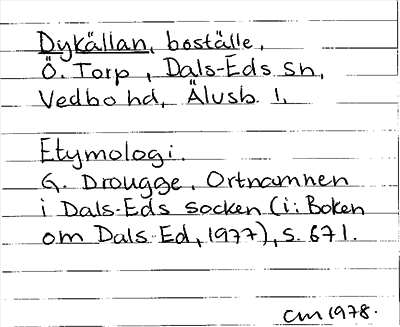 Dykällan, boställe,
Ö. Torp, Dals-Eds sn,
Vedbo hd, Älvsb. l.
Etymologi.
G. Drougge, Ortnamnen
i Dals-Eds socken (i: Boken
om Dals-Ed, 1977), s. 671.
CM 1978.